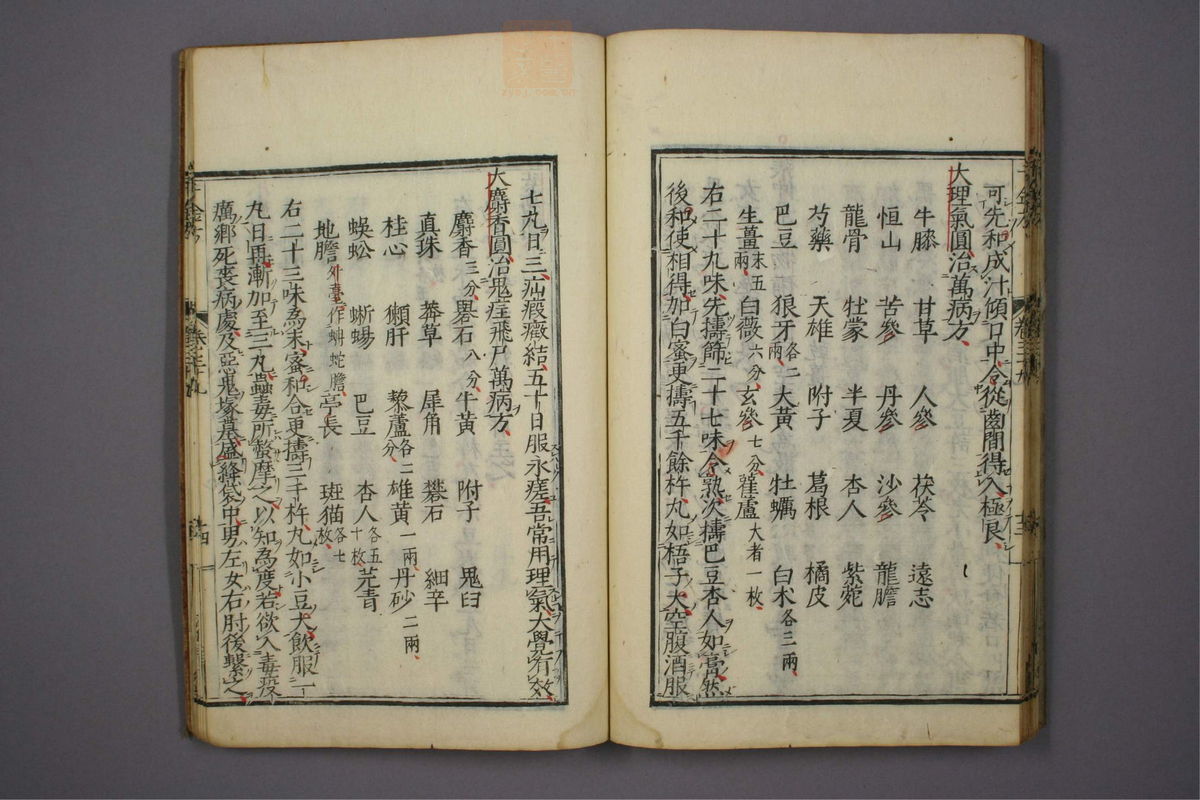 可先和成汁傾口中令從齒間得入極良
大理氣圓治萬病方
牛膝 甘草 人參 茯苓 遠志
恒山 苦參 丹參 沙參 龍膽
龍骨 牡蒙 半夏 杏人 紫菀
芍藥 天雄 附子 葛根 橘皮
巴豆 狼牙各二兩 大黃 牡蠣 白朮各三兩
生薑末五兩 白薇六分 玄參七分 雚蘆大者一枚
右二十九味先擣篩二十七味令熟次擣巴豆杏人如膏然
後和使相得加白蜜更擣五千餘杵丸如梧子大空腹酒服
七丸日三疝瘕癥結五十日服永瘥吾常用理氣大覺有效
大麝香圓治鬼疰飛尸萬病方
麝香三分 礜石八分 牛黃 附子 鬼臼
真珠 莽草 犀角 礬石 細辛
桂心 獺肝 藜蘆各二分 雄黃一兩 丹砂二兩
蜈蚣 蜥蜴 巴豆 杏人各五十枚 芫青
地膽外臺作蚺蛇膽 亭長 斑猫各七枚
右二十三味為末蜜和合更擣三千杵丸如小豆大飲服一
丸日再漸加至三丸蟲毒所螫摩之以知為度若欲入毒疫
癘鄉死喪病處及惡鬼塚墓盛絳袋中男左女右肘後繫之